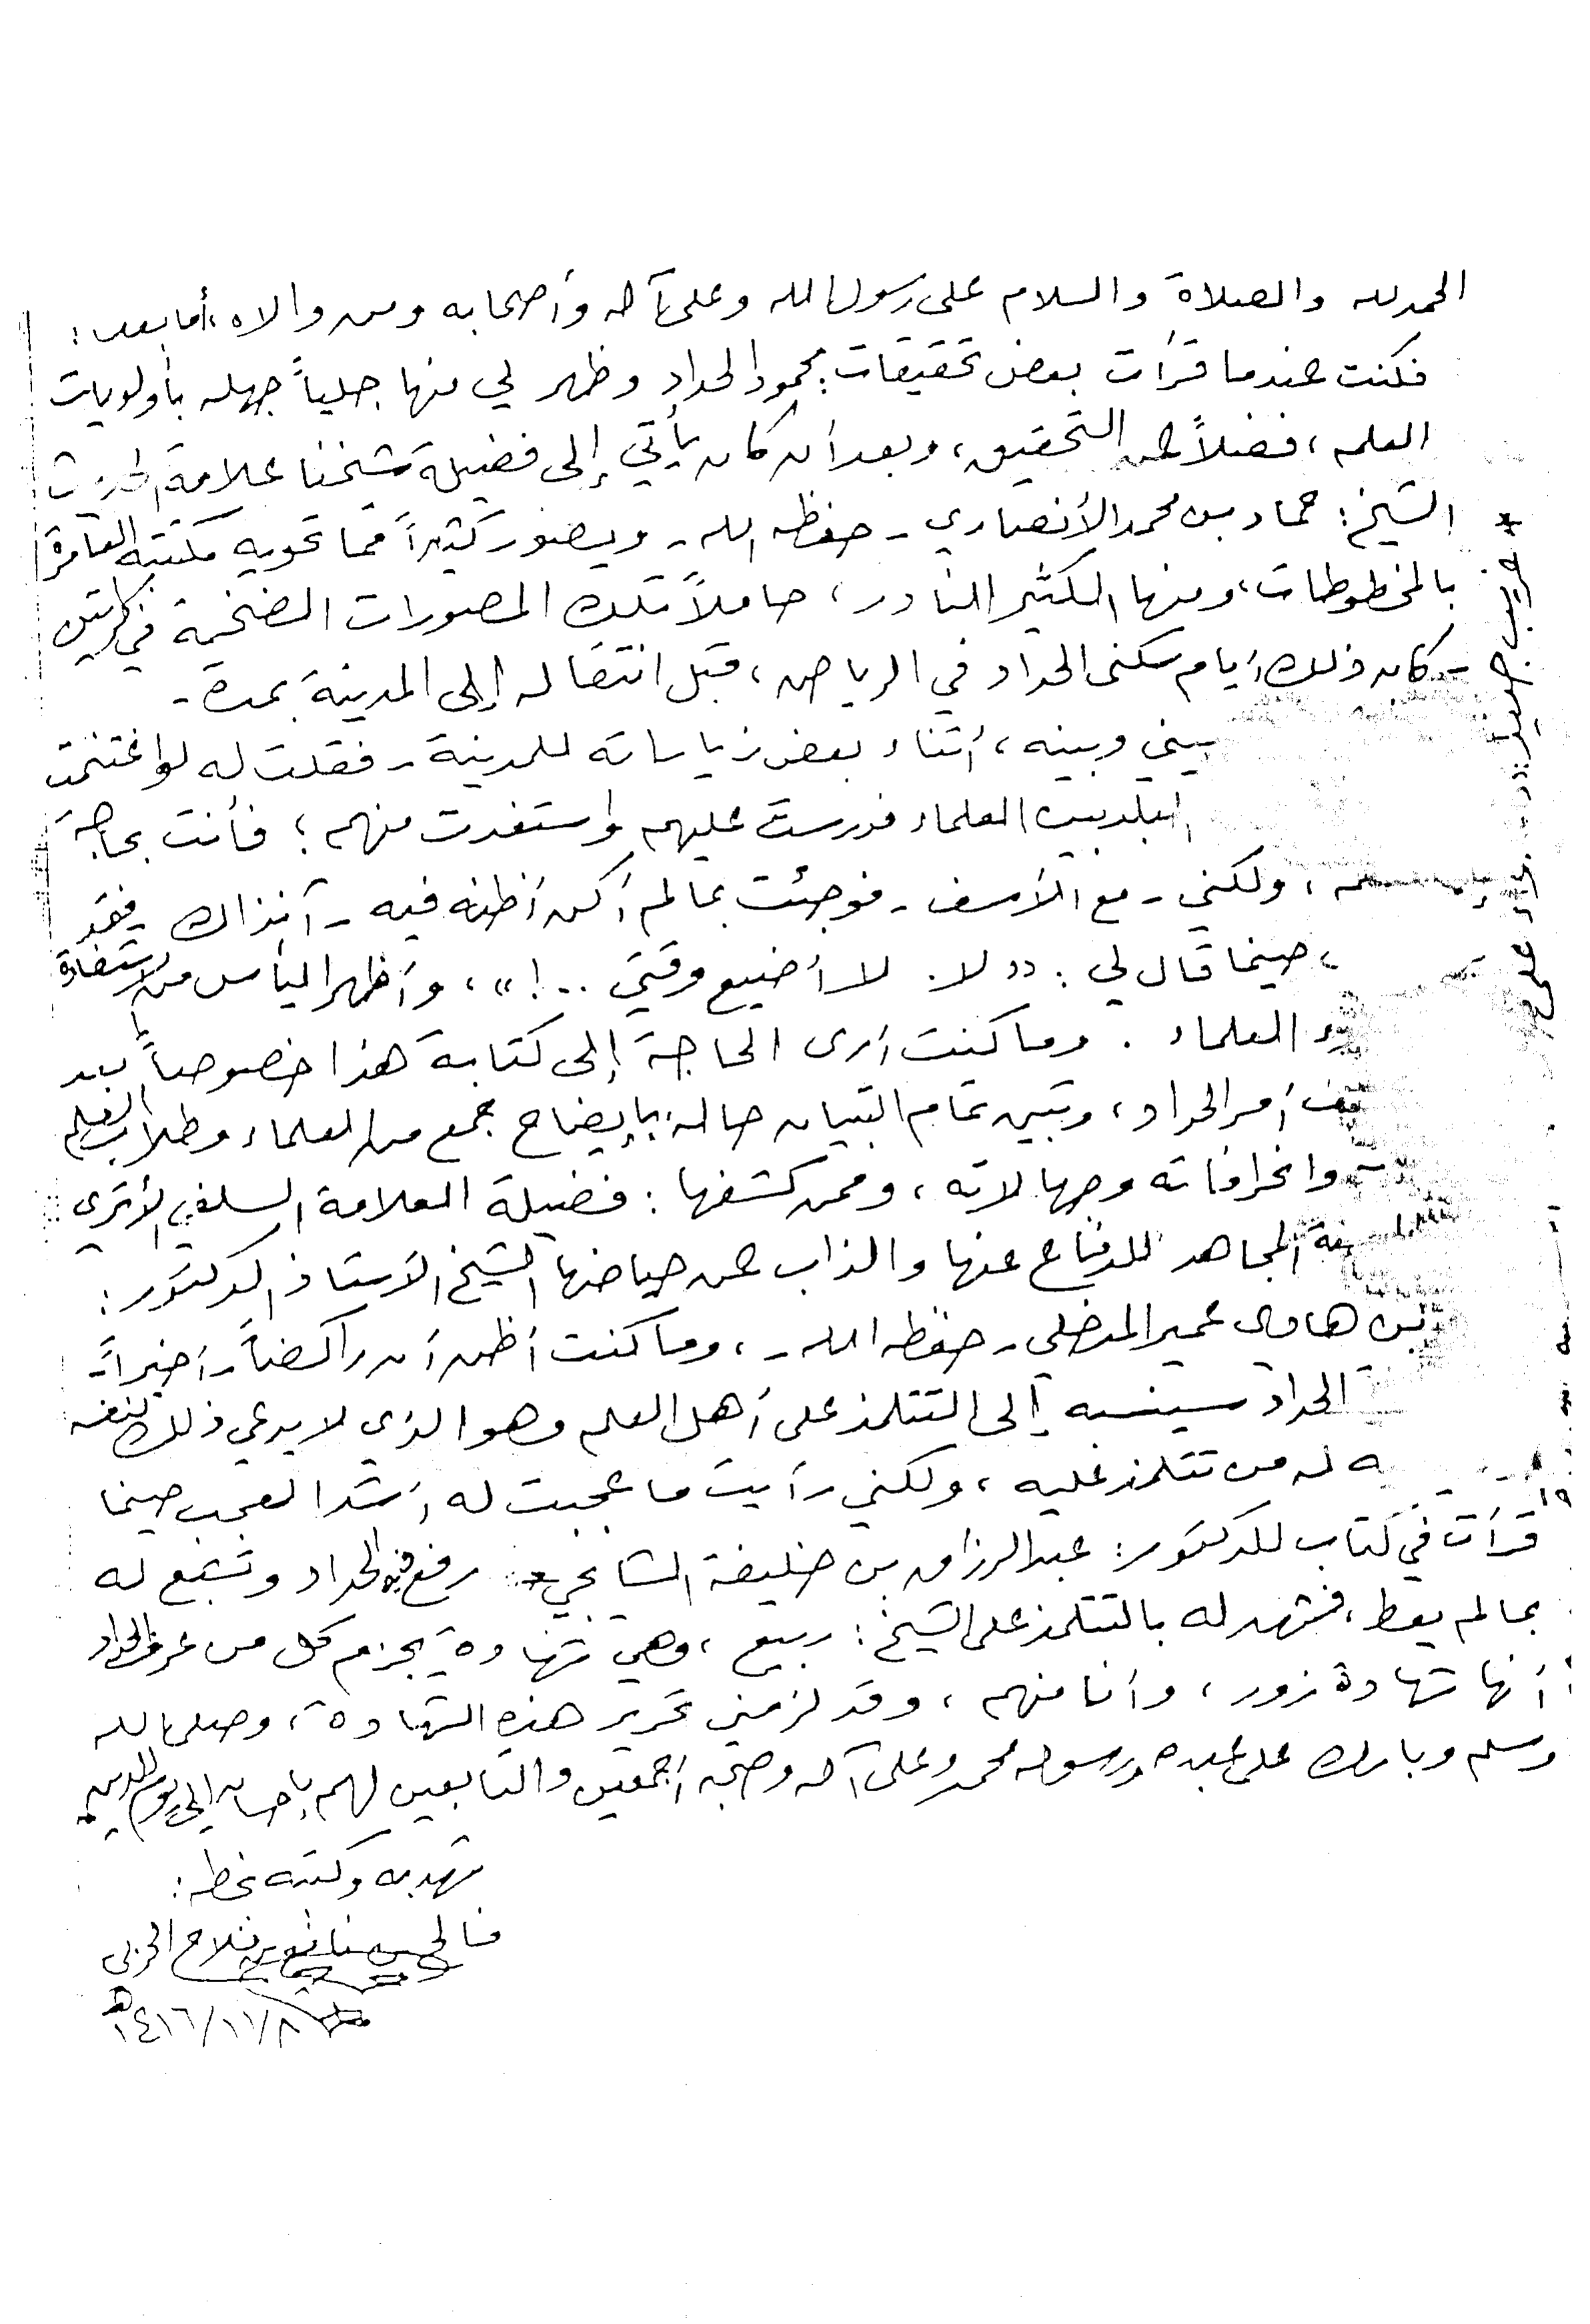 الحمد لله والصلاة والسلام على رسول الله وعلى آله وأصحابه ومن والاه، أما بعد:
فكنت عندما قرأت بعض تحقيقات: محمود الحداد وظهر لي منها جلياً جهله بأولويات
العلم، فضلاً عن التحقيق، وبعد أن كان يأتي إلى فضيلة شيخنا علامة الحديث
الشيخ: حماد بن محمد الأنصاري - حفظه الله - ويصور كثيراً مما تحويه مكتبته العامرة
بالمخطوطات، ومنها الكثير النادر، حاملاً تلك المصورات الضخمة في كراتين
- كان ذلك أيام سكنى الحداد في الرياض، قبل انتقاله إلى المدينة بمدة -
بيني وبينه، أثناء بعض زياراته للمدينة - فقلت له لو اغتنمت
العلماء فدرست عليهم واستفدت منهم؛ فأنت بحاجة
، ولكني - مع الأسف - فوجئت بما لم أكن أظنه فيه - آنذاك - فقد
، حينما قال لي: «لا. لا أضيع وقتي ..!»، وأظهر اليأس من الاستفادة
العلماء. وما كنت أرى الحاجة إلى كتابة هذا خصوصاً بعد
أمر الحداد، وتبين تمام التبيان حاله بإيضاح جمع من العلماء وطلاب العلم
وانحرافاته وجهالاته، وممن كشفها: فضيلة العلامة السلفي الأثري
المجاهد للدفاع عنها والذاب عن حياضها الشيخ الأستاذ الدكتور:
بن هادي عمير المدخلي - حفظه الله -، وما كنت أظن أن راكضاً - أخيراً -
الحداد سينسبه إلى التتلمذ على أهل العلم وهو الذي لا يدعي ذلك لنفسه
له من تتلمذ عليه، ولكني رأيت ما عجبت له أشد العجب حينما
قرأت في كتاب للدكتور: عبد الرزاق بن خليفة الشايجي * رفع فيه الحداد وتشبع له
بما لم يعط، فشهد له بالتتلمذ على الشيخ: ربيع، وهي شهادة يجزم كل من عرف الحداد
أنها شهادة زور، وأنا منهم، وقد لزمني تحرير هذه الشهادة، وصلى الله
وسلم وبارك على عبده ورسوله محمد وعلى آله وصحبه أجمعين والتابعين لهم بإحسان إلى يوم الدين.
شهد به وكتبه بخطه:
فالح بن نافع بن فلاح الحربي
١٤١٦/١١/٨هـ